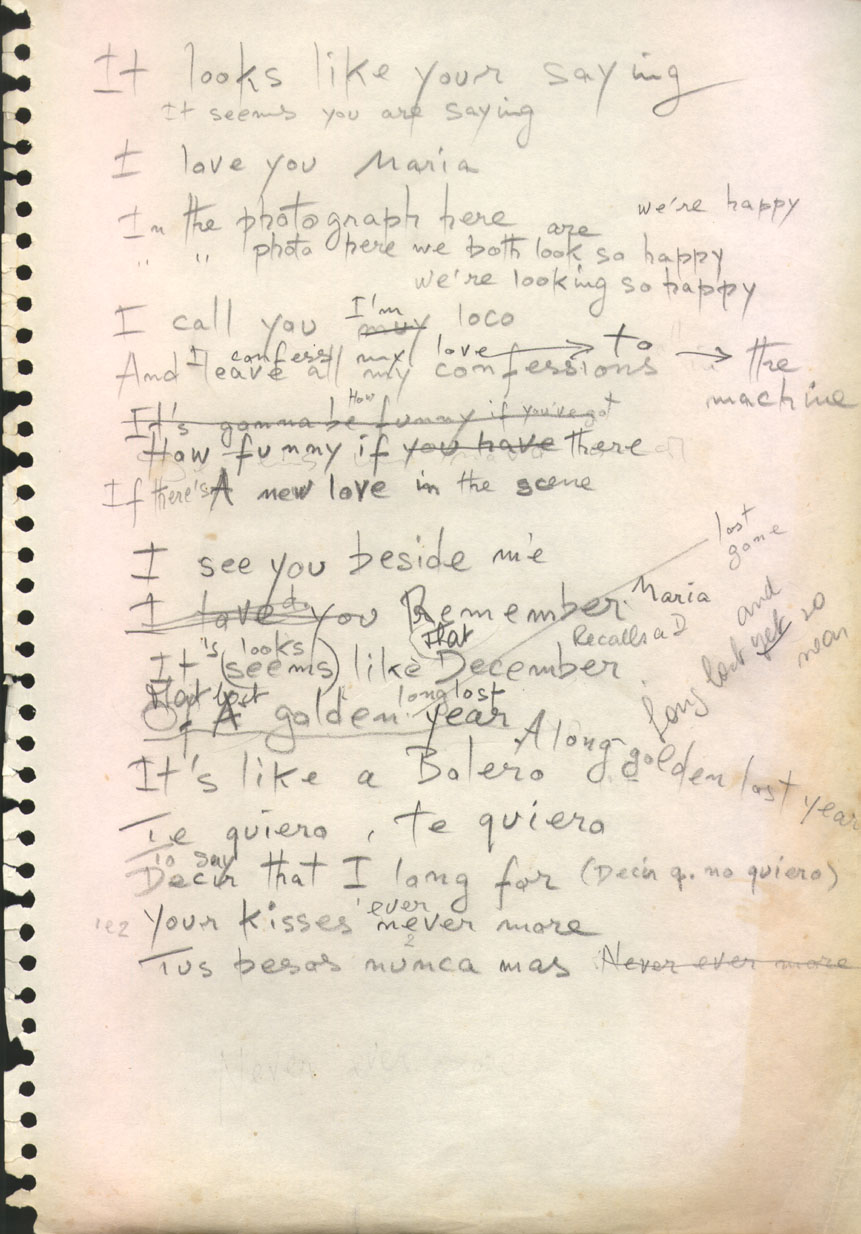 It looks like your saying
It seems you are saying
I love you Maria
we're happy
In the photograph here are
" " photo here we both look so happy
we're looking so happy
I call you I'm muy loco
I confess my love to the
And leave all my confessions
machine
It's gonna be funny if you've got
How
How funny if you have there
If there's A new love in the scene
lost
gone
I see you beside me
I love do you Remember Maria
That
Recalls a D
and
Long lost yet so
near
It's looks (seems) like December
long lost
Of A golden year
A long golden last year
It's like a Bolero
Te quiero, te quiero
To say
Decir that I long for (Decir q. no quiero)
ever
Your kisses never more
Tus besos nunca mas Never ever more
Never